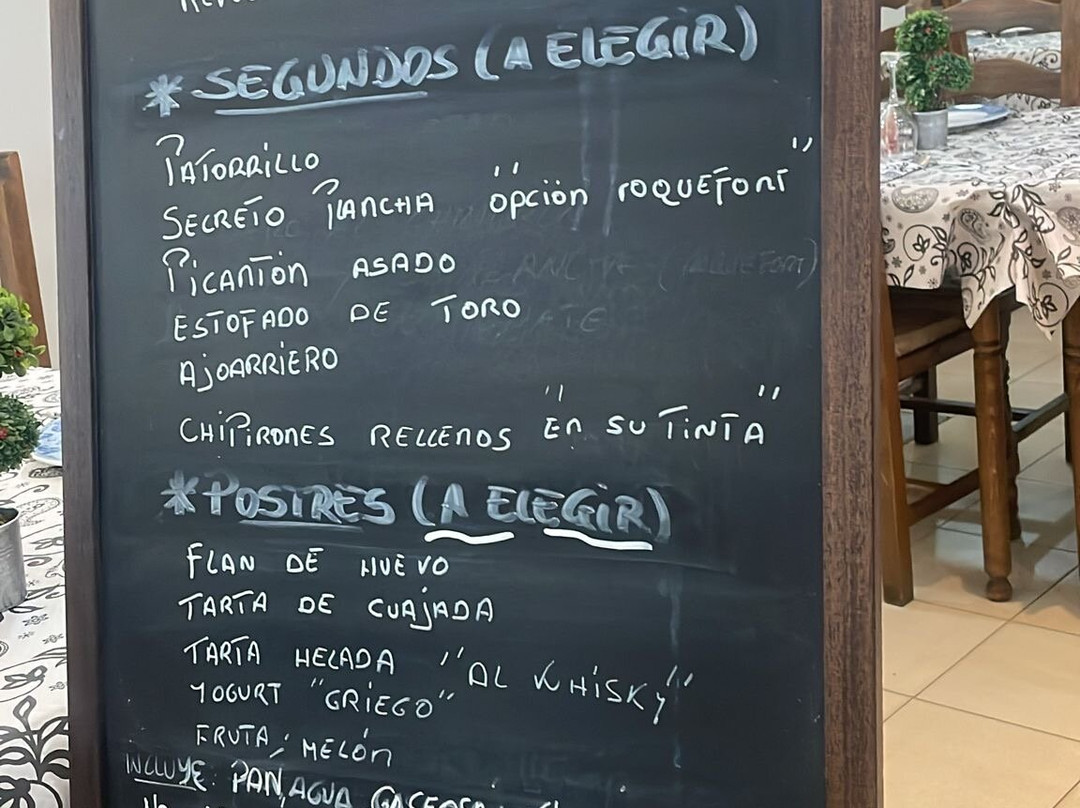 * SEGUNDOS (A ELEGIR)
PATORRILLO
SECRETO PLANCHA "OPCIÓN ROQUEFORT"
PICANTÓN ASADO
ESTOFADO DE TORO
AJOARRIERO
CHIPIRONES RELLENOS "EN SU TINTA"
* POSTRES (A ELEGIR)
FLAN DE HUEVO
TARTA DE CUAJADA
TARTA HELADA "AL WHISKY"
YOGURT "GRIEGO"
FRUTA: MELÓN
INCLUYE: PAN, AGUA